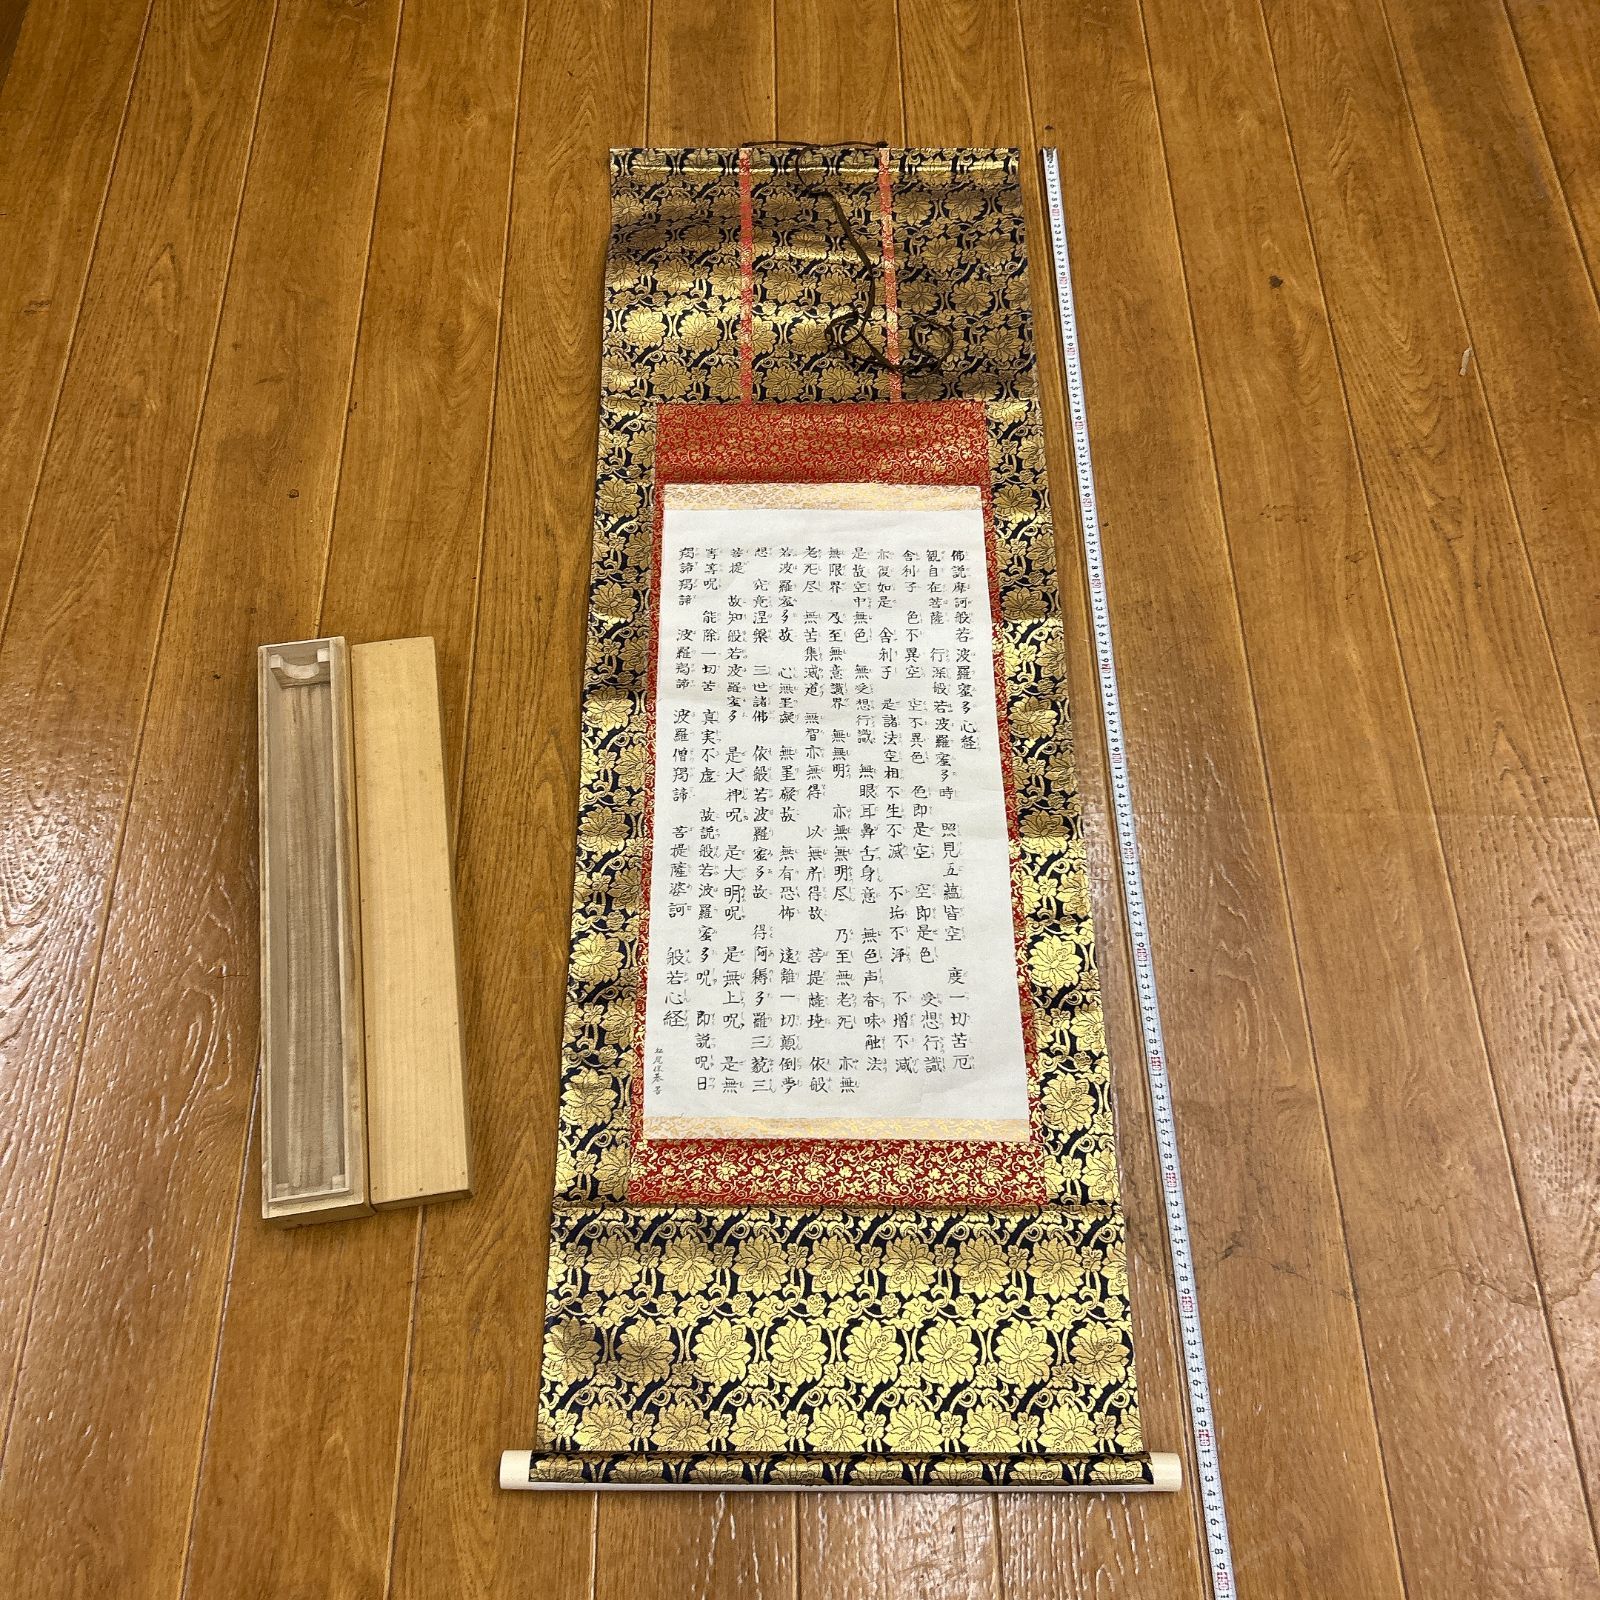 佛説摩訶般若波羅蜜多心経
観自在菩薩 行深般若波羅蜜多時 照見五蘊皆空 度一切苦厄
舎利子 色不異空 空不異色 色即是空 空即是色 受想行識
亦復如是 舎利子 是諸法空相 不生不滅 不垢不浄 不増不減
是故空中無色 無受想行識 無眼耳鼻舌身意 無色声香味触法
無限界 乃至無意識界 無無明 亦無無明尽 乃至無老死 亦無
老死尽 無苦集滅道 無智亦無得 以無所得故 菩提薩埵 依般
若波羅蜜多故 心無罣礙 無罣礙故 無有恐怖 遠離一切顛倒夢
想 究竟涅槃 三世諸佛 依般若波羅蜜多故 得阿耨多羅三藐三
菩提 故知般若波羅蜜多 是大神呪 是大明呪 是無上呪 是無
等等呪 能除一切苦 真実不虚 故説般若波羅蜜多呪 即説呪曰
羯諦羯諦 波羅羯諦 波羅僧羯諦 菩提薩婆訶 般若心経